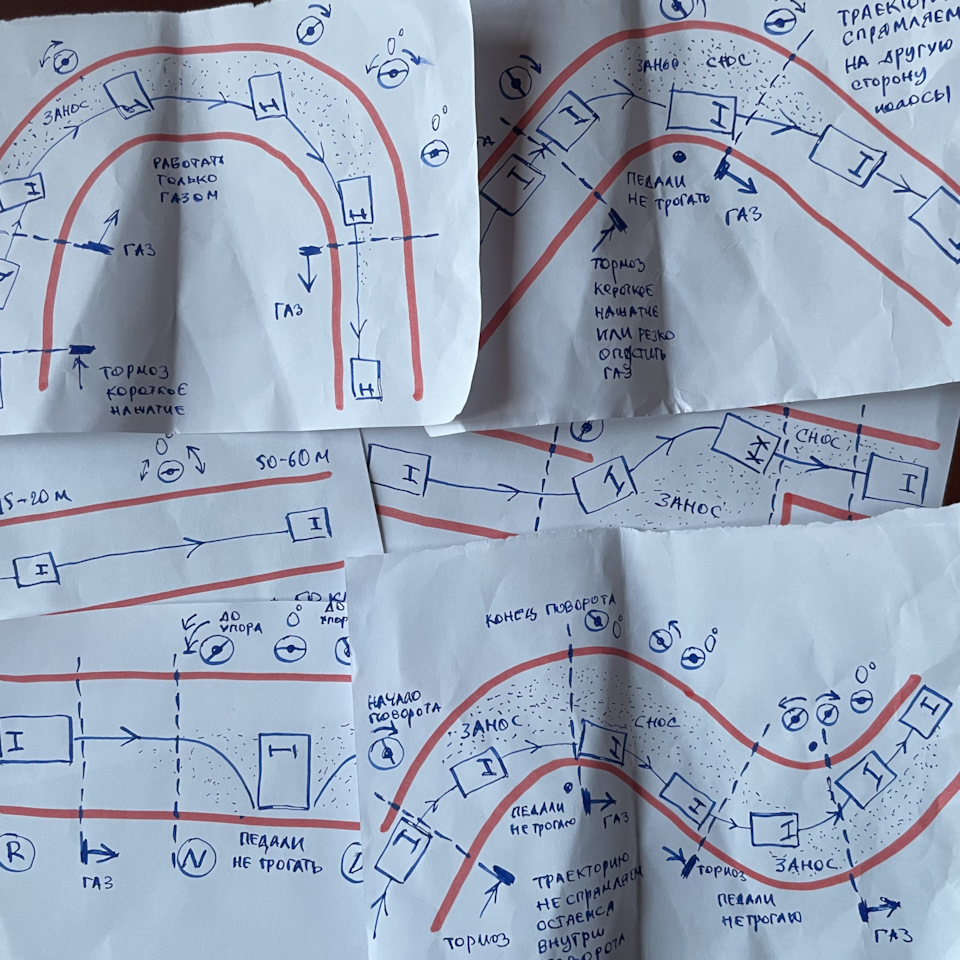 ЗАНОС
РАБОТАТЬ
ТОЛЬКО
ГАЗОМ
ГАЗ
ГАЗ
ТОРМОЗ
КОРОТКОЕ
НАЖАТИЕ
0°
0°
ЗАНОС СНОС
ТРАЕКТОРИЮ
СПРЯМЛЯЕМ
НА ДРУГУЮ
СТОРОНУ
ПОЛОСЫ
ПЕДАЛИ
НЕ ТРОГАТЬ
ГАЗ
ТОРМОЗ
КОРОТКОЕ
НАЖАТИЕ
ИЛИ РЕЗКО
ОПУСТИТЬ
ГАЗ
0°
50-60 М
15-20 М
СНОС
ЗАНОС
ДО
УПОРА
0°
ДО
УПОР
R
ГАЗ
N
ПЕДАЛИ
НЕ ТРОГАТЬ
КОНЕЦ ПОВОРОТА
0°
0°
0°
НАЧАЛО
ПОВОРОТА
ЗАНОС
СНОС
ПЕДАЛИ
НЕ ТРОГАЮ
ГАЗ
ТОРМОЗ
ТРАЕКТОРИЮ
НЕ СПРЯМЛЯЕМ
ОСТАЕМСЯ
ВНУТРИ
ПОВОРОТА
ЗАНОС
ТОРМОЗ
ПЕДАЛИ
НЕ ТРОГАЮ
ГАЗ